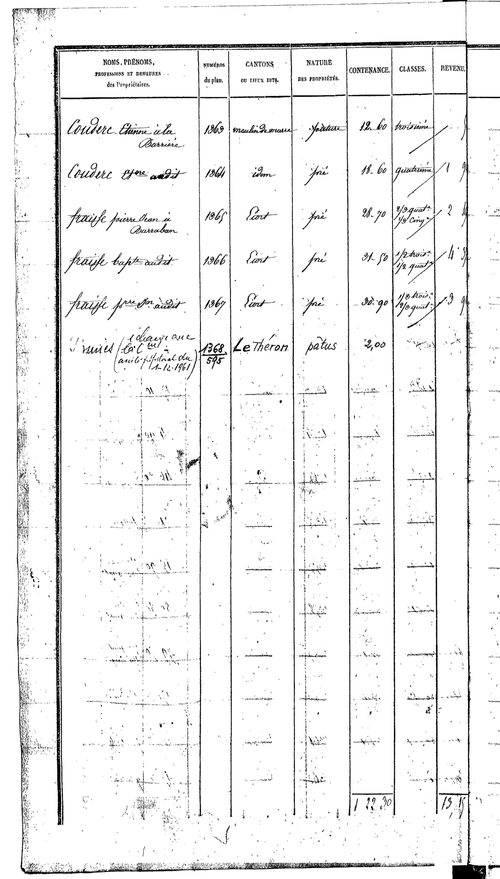 NOMS, PRÉNOMS,
PROFESSIONS ET DEMEURES
des Propriétaires.
NUMÉROS
du plan.
CANTONS
OU LIEUX DITS.
NATURE
DES PROPRIÉTÉS.
CONTENANCE.
CLASSES.
REVENU.
Couderc Etienne à la
Barriére
1363 moulin de murie pature 12. 60 troisième
Couderc Etne audit 1364 idem pré 18. 60 quatrième 1
fraisse pierre Jean à
Burraban
1365 Liort pré 28. 70 2/3 quat.
1/3 cinq.
2
fraisse bapte audit 1366 Liort pré 31. 50 1/2 trois.
1/2 quat.
4
fraisse audit 1367 Liort pré 30. 90 1/3 trois.
2/3 quat.
3
échange avec
1-12-1961)
1368
595
Le Théron patus 2,00
1 22 30